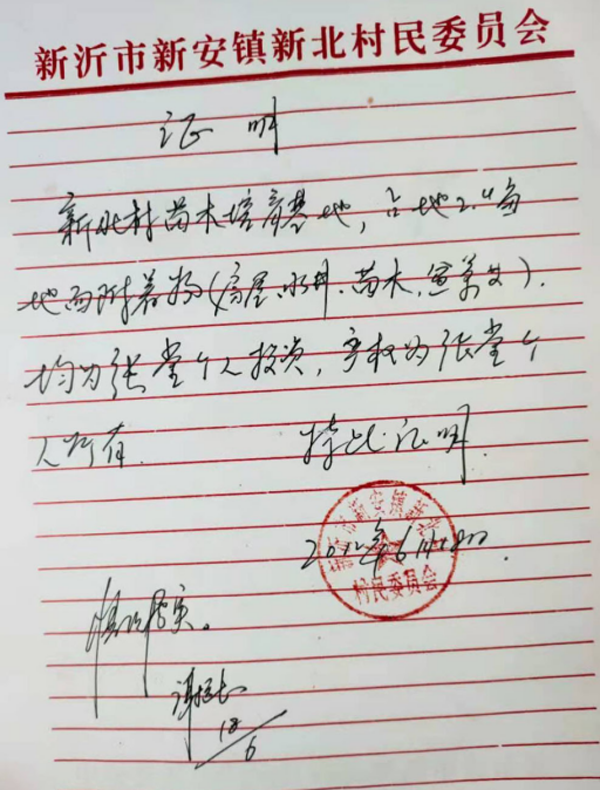 新沂市新安镇新北村民委员会
证 明
新北村苗木培育基地，占地2.4亩
地面附着物(房屋、水井、苗木、
均为张堂个人投资，产权为张堂个
人所有. 特此证明.
2012年6月18日
新沂市新安镇新北
村民委员会
情况属实。
18/6